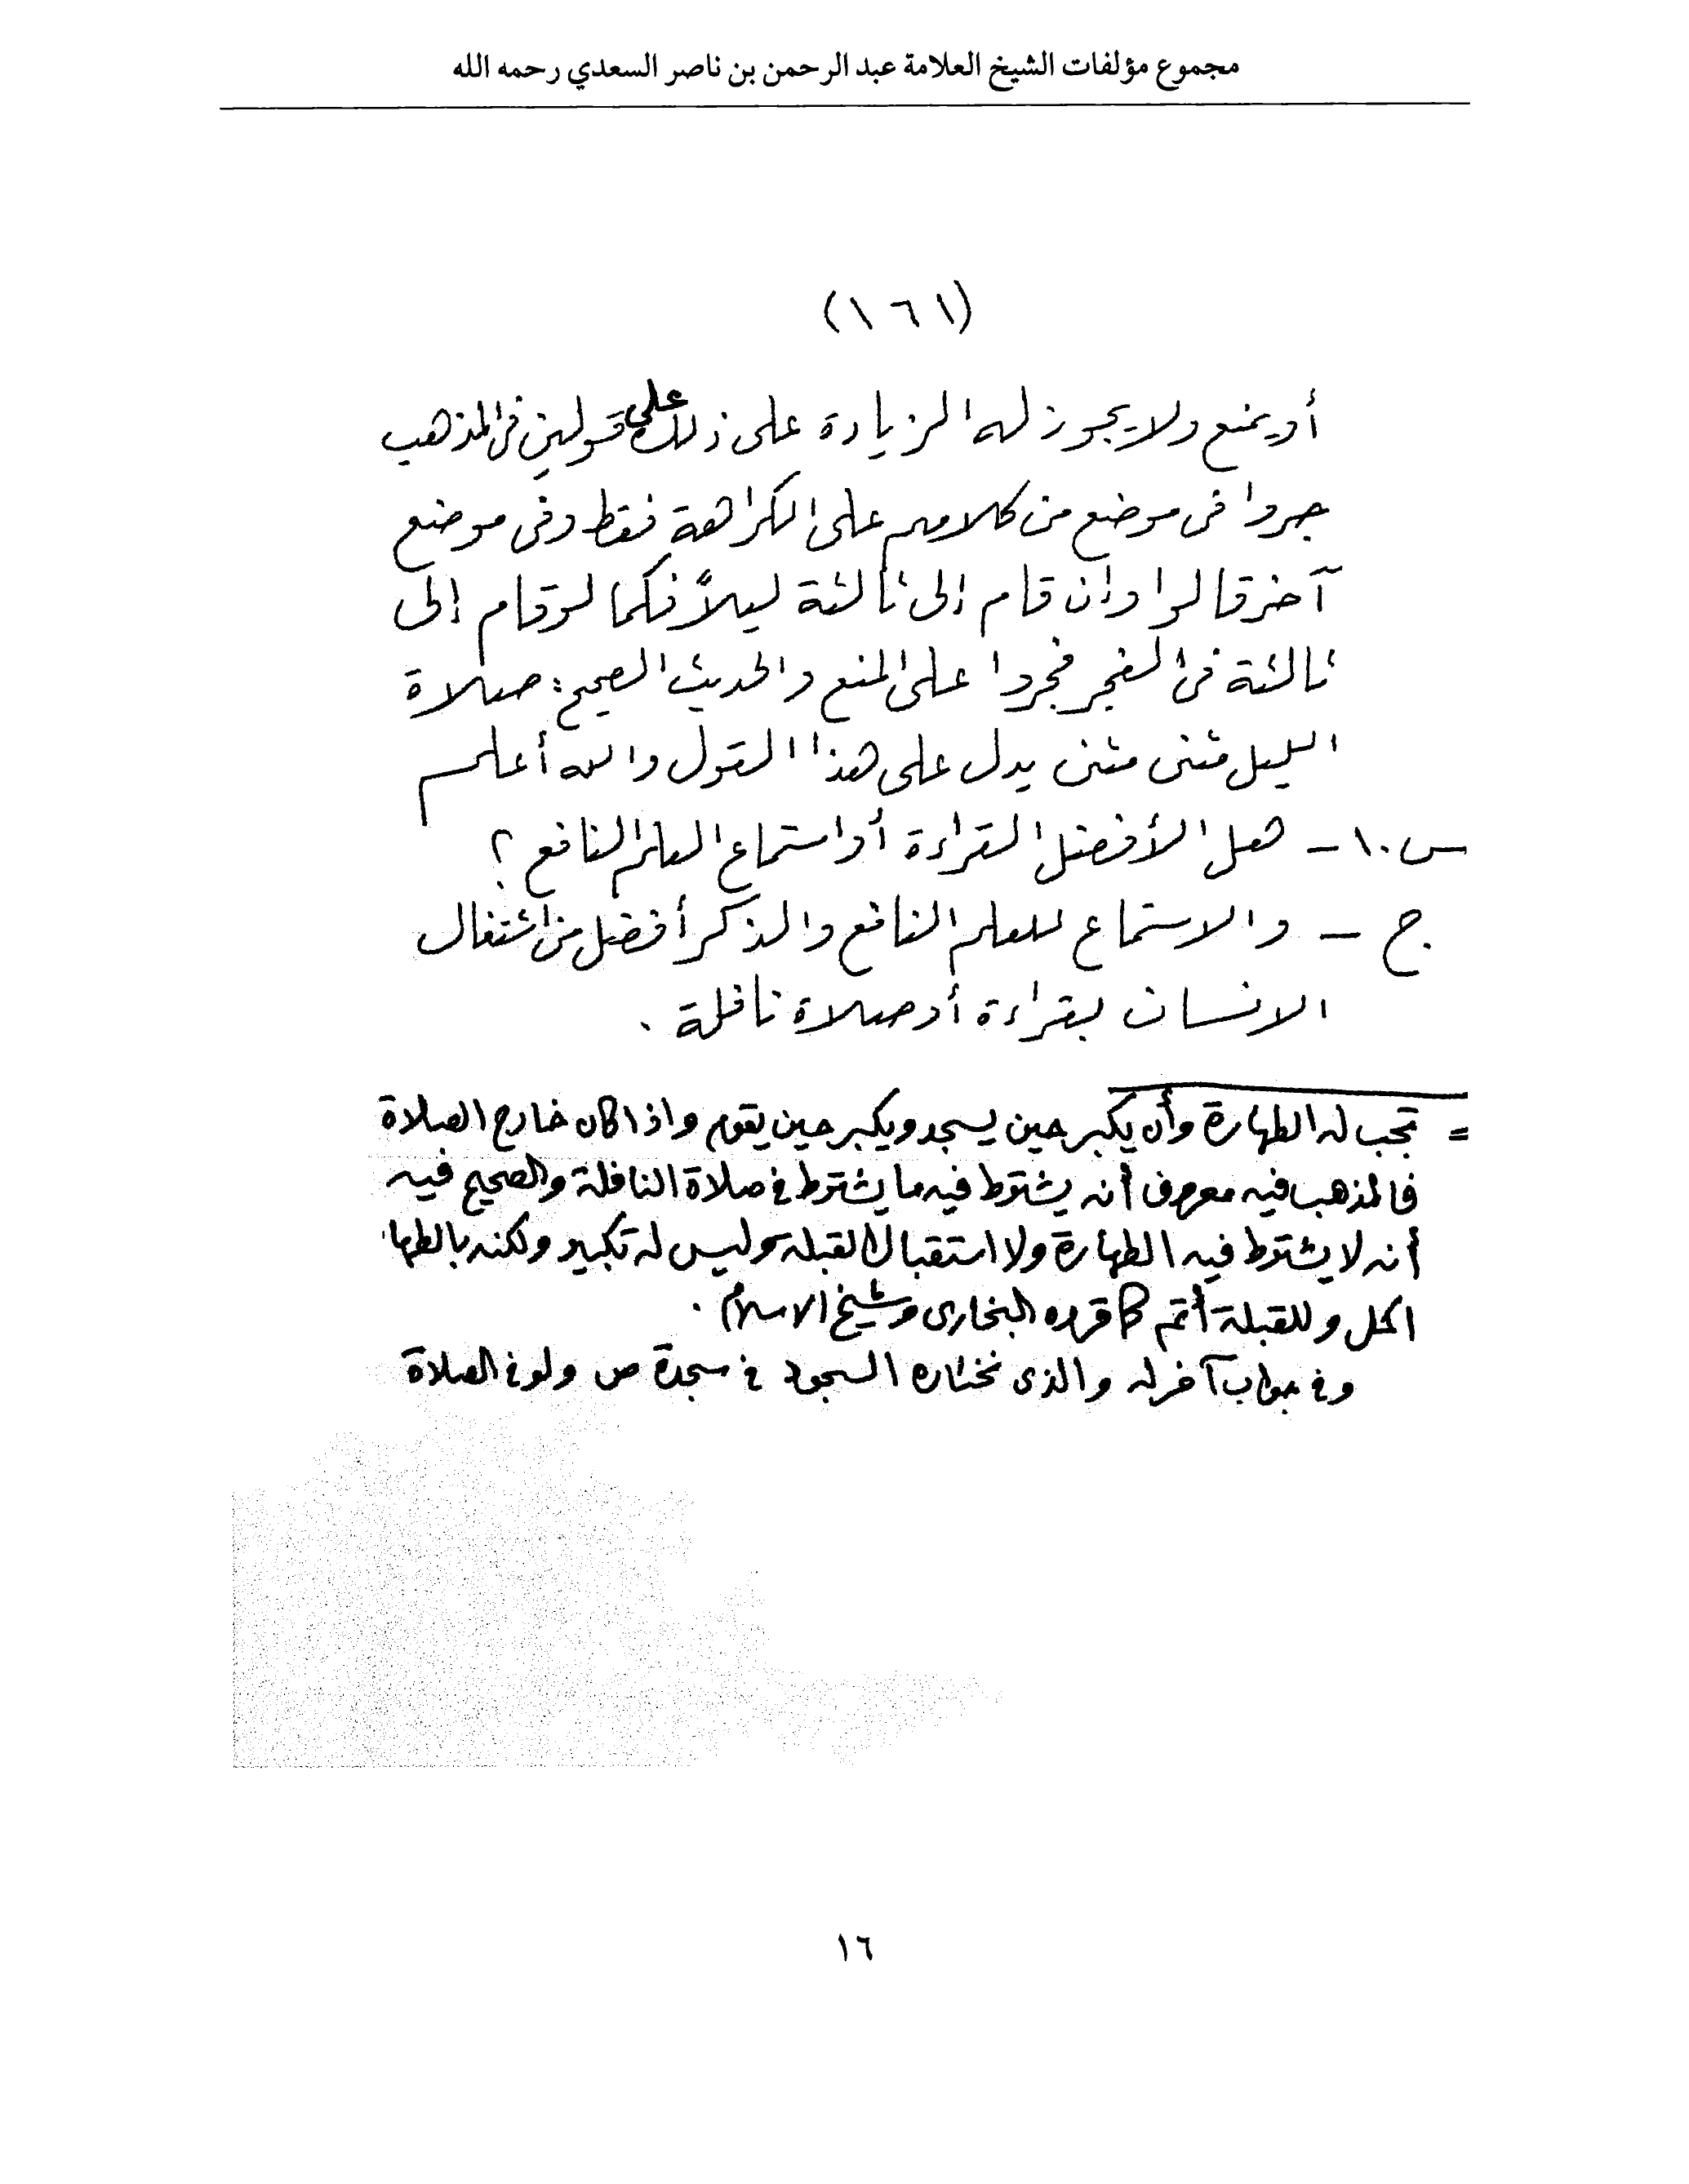 مجموع مؤلفات الشيخ العلامة عبد الرحمن بن ناصر السعدي رحمه الله
(١٦١)
أو يمنع ولا يجوز له الزيادة على ذلك على قولين في المذهب
جروا في موضع من كلامهم على الكراهة فقط وفي موضع
آخر قالوا وإن قام إلى ثالثة ليلاً فكما لو قام إلى
ثالثة في الفجر فجروا على المنع والحديث الصحيح: صلاة
الليل مثنى مثنى يدل على هذا القول والله أعلم
س١٠ـ هل الأفضل القراءة أو استماع العلم النافع؟
ج ـ والاستماع للعلم النافع والذكر أفضل من اشتغال
الانسان بقراءة أو صلاة نافلة.
= تجب له الطهارة وأن يكبر حين يسجد ويكبر حين يقوم واذا كان خارج الصلاة
فالمذهب فيه معروف أنه يشترط فيه ما يشترط في صلاة النافلة والصحيح فيه
أنه لا يشترط فيه الطهارة ولا استقبال القبلة وليس له تكبير ولكنه بالطها
أكمل وللقبلة أتم كما قرره البخارى وشيخ الاسلام.
وفي جواب آخر له والذى نختاره السجود في سجدة ص ولو في الصلاة
١٦